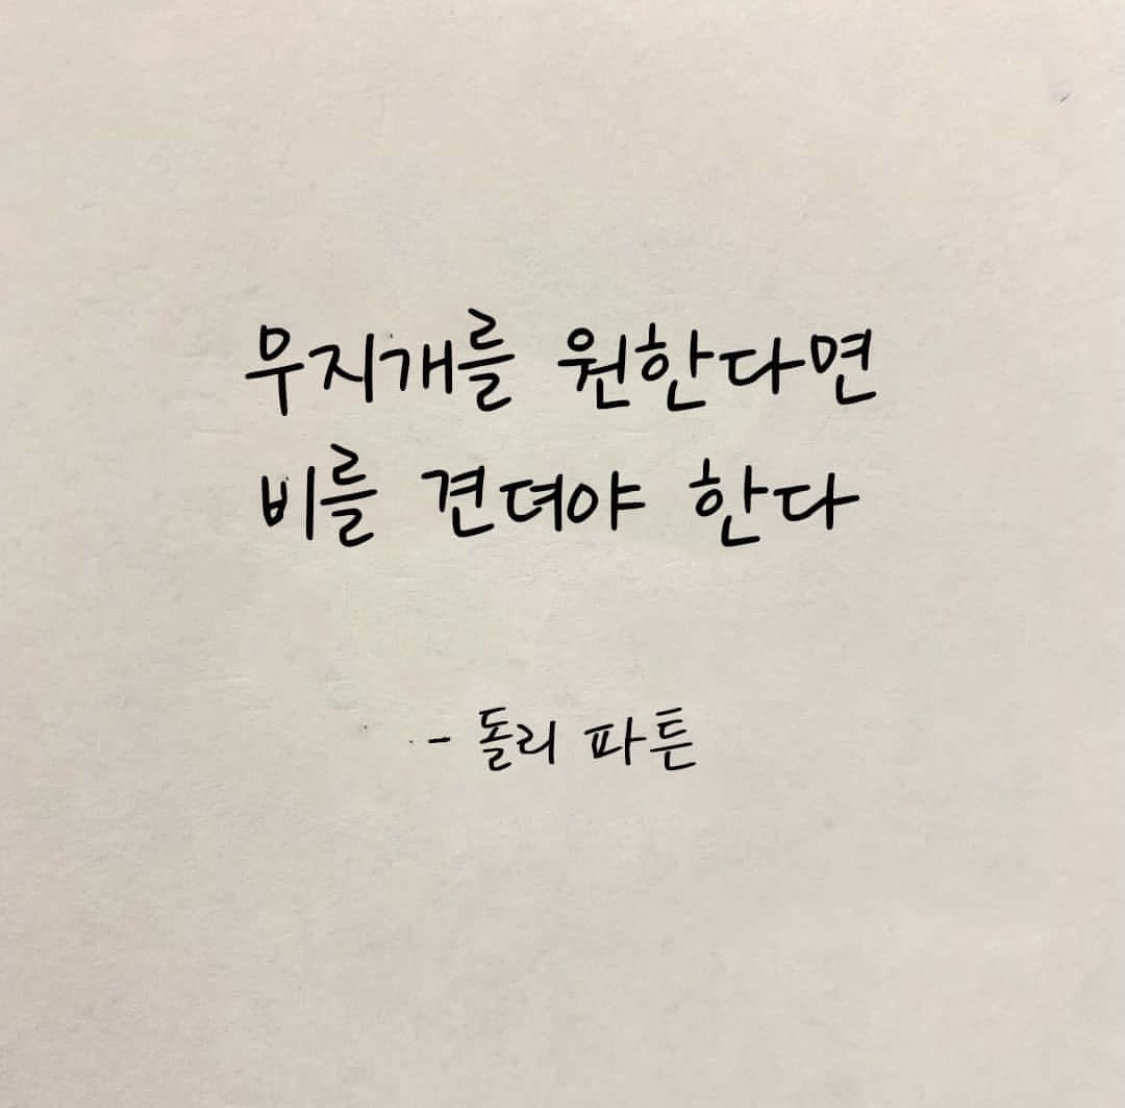 무지개를 원한다면
비를 견뎌야 한다
- 돌리 파튼